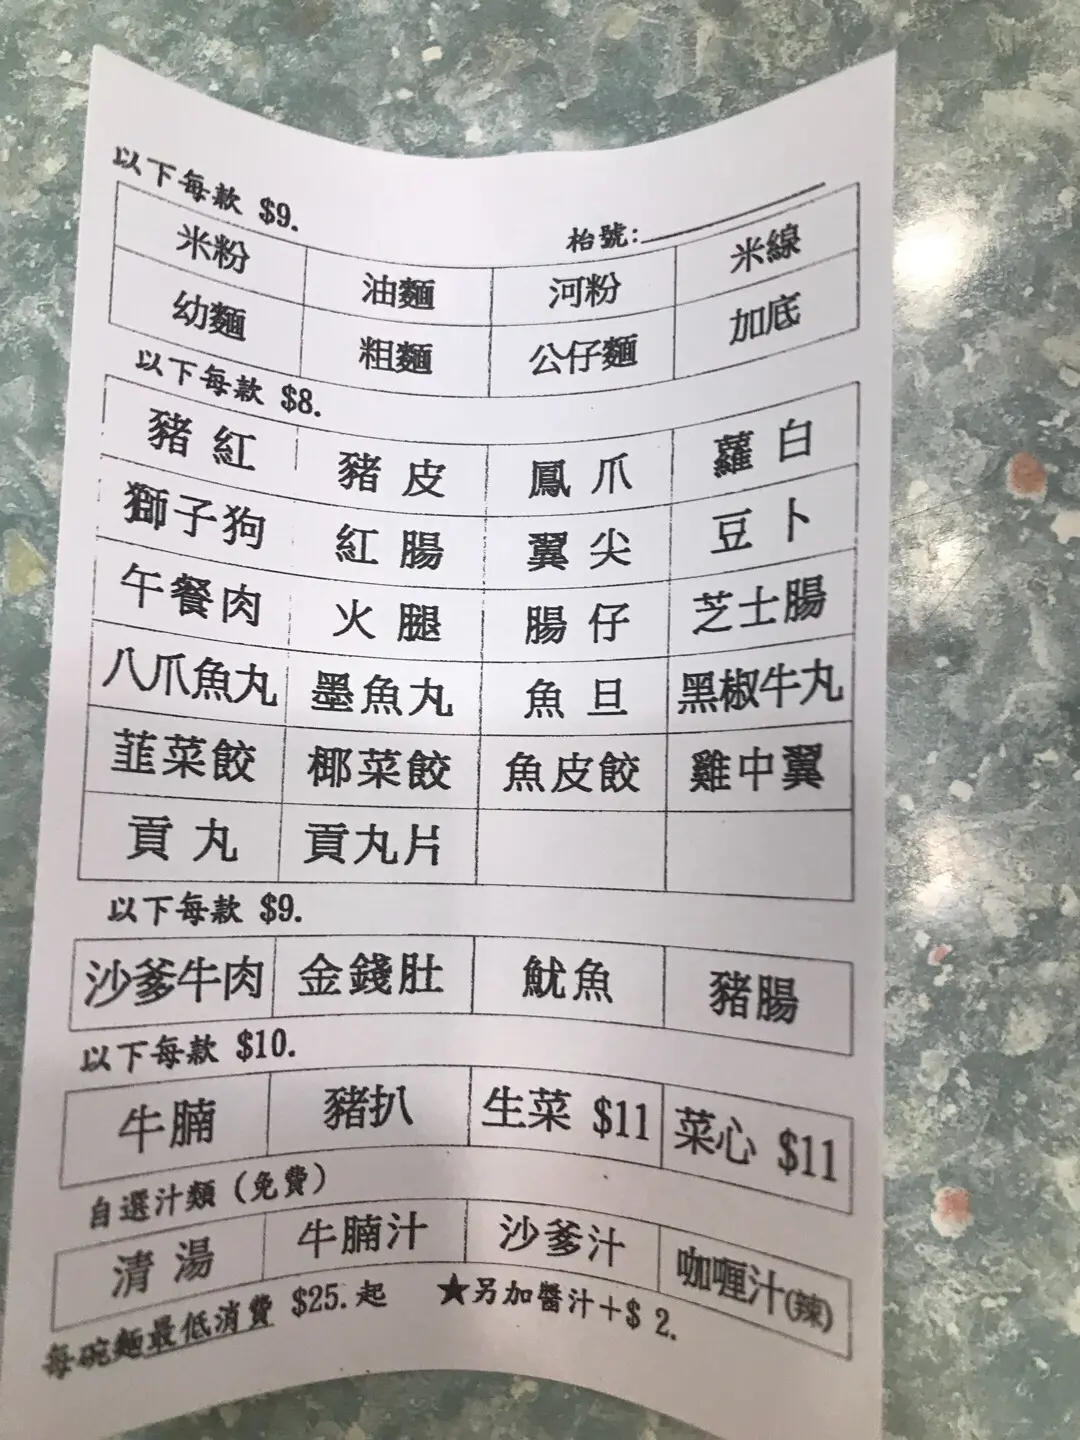 以下每款 $9.
枱號:
米粉 油麵 河粉 米線
幼麵 粗麵 公仔麵 加底
以下每款 $8.
豬紅 豬皮 鳳爪 蘿白
獅子狗 紅腸 翼尖 豆卜
午餐肉 火腿 腸仔 芝士腸
八爪魚丸 墨魚丸 魚旦 黑椒牛丸
韮菜餃 椰菜餃 魚皮餃 雞中翼
貢丸 貢丸片
以下每款 $9.
沙爹牛肉 金錢肚 魷魚 豬腸
以下每款 $10.
牛腩 豬扒 生菜 $11 菜心 $11
自選汁類(免費)
清湯 牛腩汁 沙爹汁 咖喱汁(辣)
每碗麵最低消費 $25.起 ★另加醬汁+$ 2.